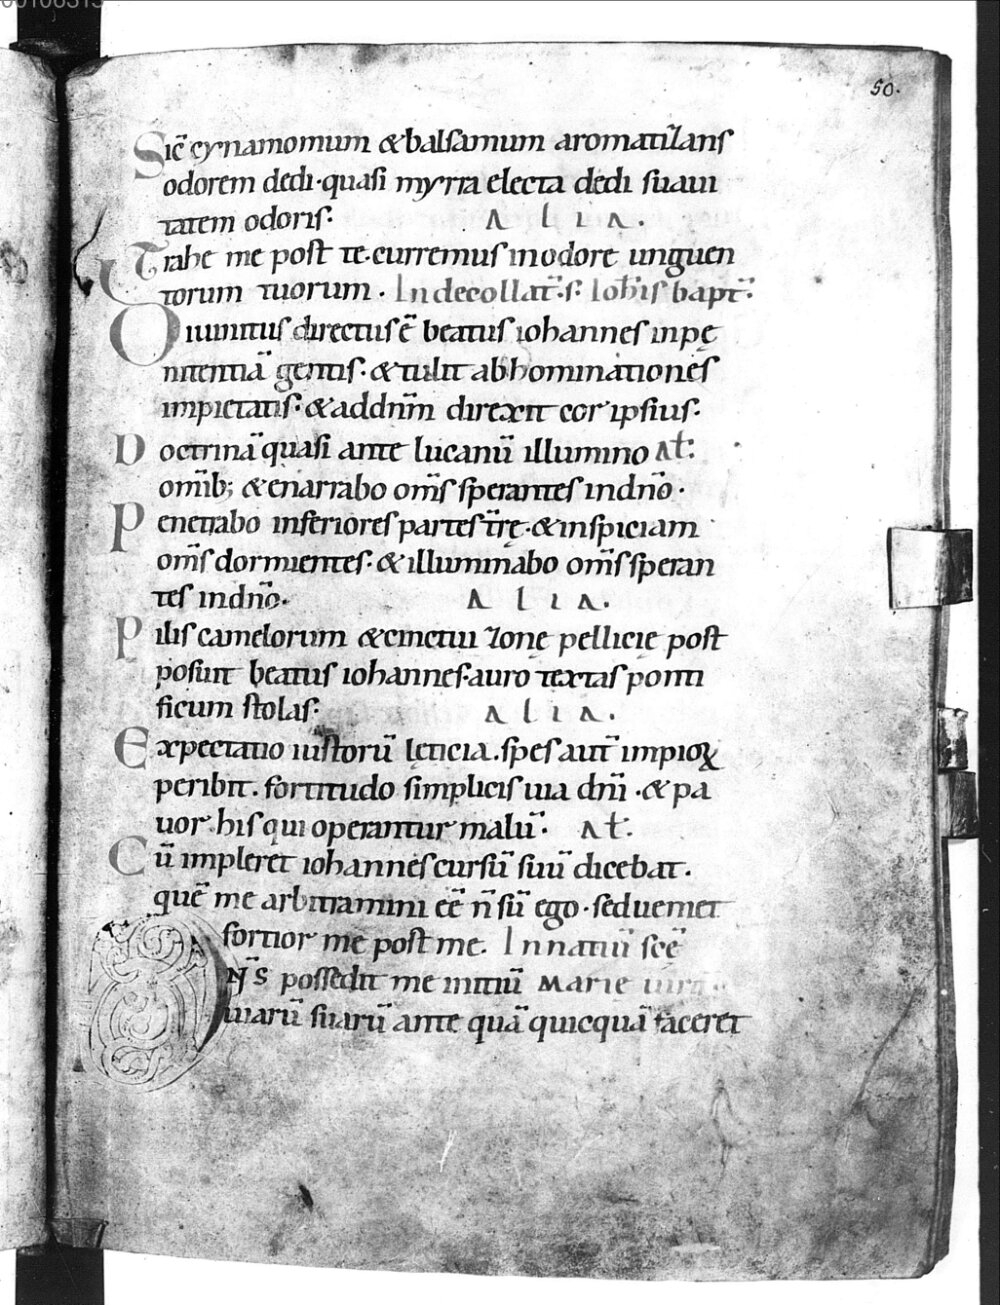 00106315
50.
Sic̄ cynamomum &balsamum aromatizans
odorem dedi·quasi myrra electa dedi suaui
tatem odoris· A L I A .
Trahe me post te·curremus inodore unguen
torum tuorum . Indecollat̄·s· Ioh̄is bapt̄·
Diuinitus directus ē beatus iohannes inpę
nitentiā gentis·&tulit abhominationes
impietatis·&addn̄m direxit cor ipsius·
Doctrinā quasi ante lucanū illumino At̄·
om̄ib; &enarrabo om̄s sperantes indn̄o·
Penetrabo inferiores partes t̄rę·&inspiciam
om̄s dormientes·&illuminabo om̄s speran
tes indn̄o· A L I A .
Pilis camelorum &emetui zonę pellicię post
posuit beatus iohannes·auro textas ponti
ficum stolas· A L I A .
Expectatio iustorū lęticia.spes aut̄ impioꝝ
peribit.fortitudo simplicis uia dn̄i .&pa
uor·his qui operantur malū· At̄·
Cū impleret iohannes cursū suū dicebat.
quē me arbitramini ēē n̄ sū ego·seduemet
fortior me post me. Innatiū sc̄ē
DN̄S possedit me initiū Marie
uiarū suarū ante quā quicquā faceret